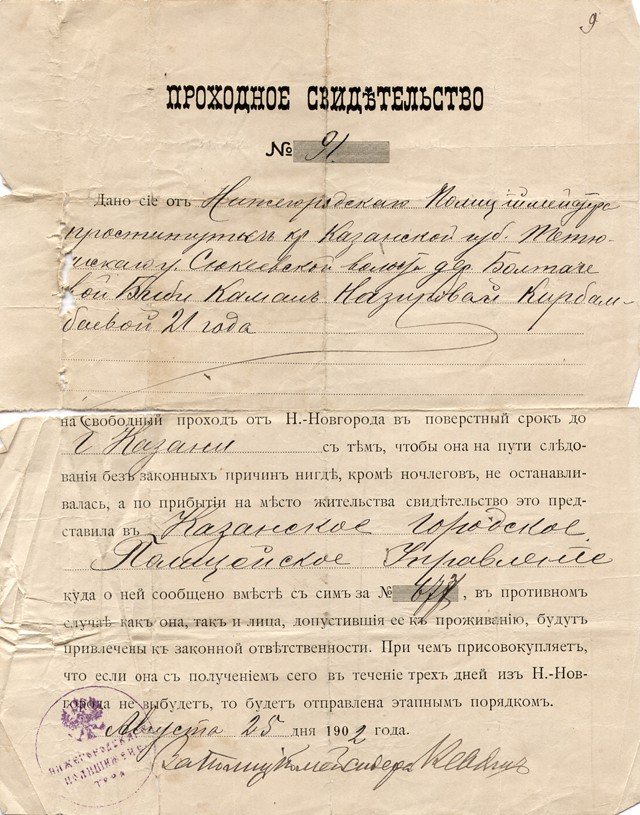 9
ПРОХОДНОЕ СВИДѢТЕЛЬСТВО
№ 91
Дано сіе отъ Нижегородскаго Полиціймейстера
проституткѣ кр. Казанской губ. Тетю-
шскаго у. Сюкеевской волости дер. Болтаче
вой Биби Камалъ Назыровой Курбам-
баевой 21 года
на свободный проходъ отъ Н.-Новгорода въ поверстный срокъ до
г. Казани съ тѣмъ, чтобы она на пути слѣдо-
ванія безъ законныхъ причинъ нигдѣ, кромѣ ночлеговъ, не останавли-
валась, а по прибытіи на мѣсто жительства свидѣтельство это пред-
ставила въ Казанское городское
Полицейское Управленіе
куда о ней сообщено вмѣстѣ съ симъ за № 677, въ противномъ
случаѣ какъ она, такъ и лица, допустившія ее къ проживанію, будутъ
привлечены къ законной отвѣтственности. При чемъ присовокупляетъ,
что если она съ полученіемъ сего въ теченіе трехъ дней изъ Н.-Нов-
города не выбудетъ, то будетъ отправлена этапнымъ порядкомъ.
Августа 25 дня 1902 года.
За Полиціймейстера
НИЖЕГОРОДСКАГО ПОЛИЦІЙМЕЙСТЕРА